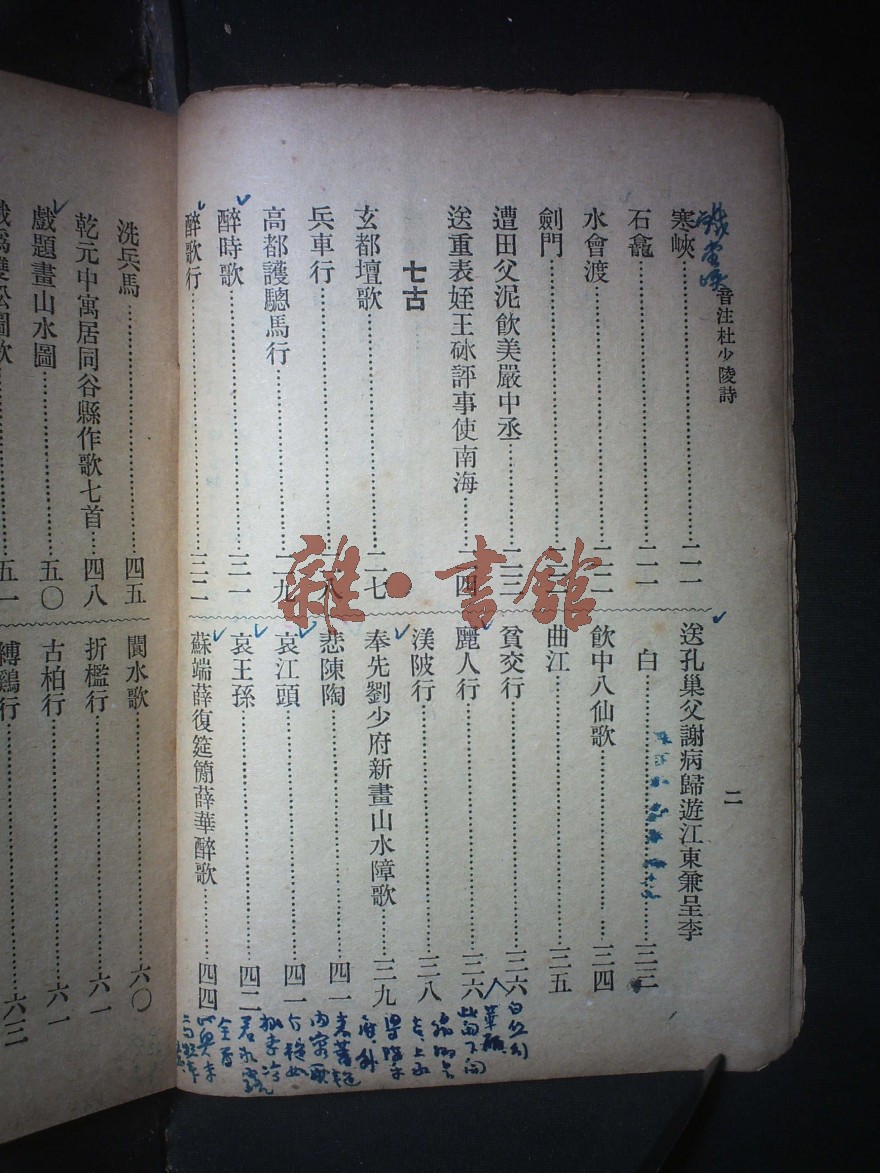 音注杜少陵詩
二
寒峽……二一
石龕……二一
水會渡……二二
劍門……二二
遭田父泥飲美嚴中丞……二三
送重表姪王砅評事使南海……二四
七古
玄都壇歌……二七
兵車行……二八
高都護驄馬行……二九
醉時歌……三一
醉歌行……三二
送孔巢父謝病歸遊江東兼呈李
白……三三
飲中八仙歌……三四
曲江……三五
貧交行……三六
麗人行……三六
渼陂行……三八
奉先劉少府新畫山水障歌……三九
悲陳陶……四一
哀江頭……四一
哀王孫……四二
蘇端薛復筵簡薛華醉歌……四四
洗兵馬……四五
乾元中寓居同谷縣作歌七首…四八
戲題畫山水圖……五〇
戲為雙松圖歌……五一
閬水歌……六〇
折檻行……六一
古柏行……六一
縛雞行……六三
雜·書館